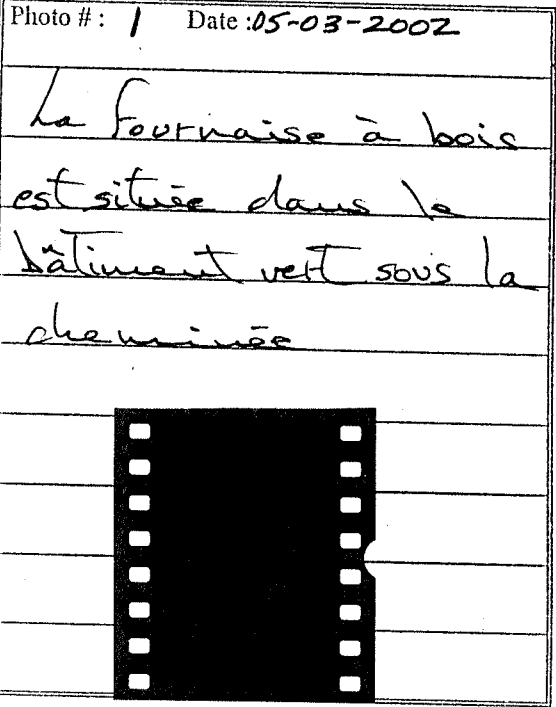 Photo # : 1 Date : 05-03-2002
La fournaise à bois
est située dans le
bâtiment vert sous la
cheminée